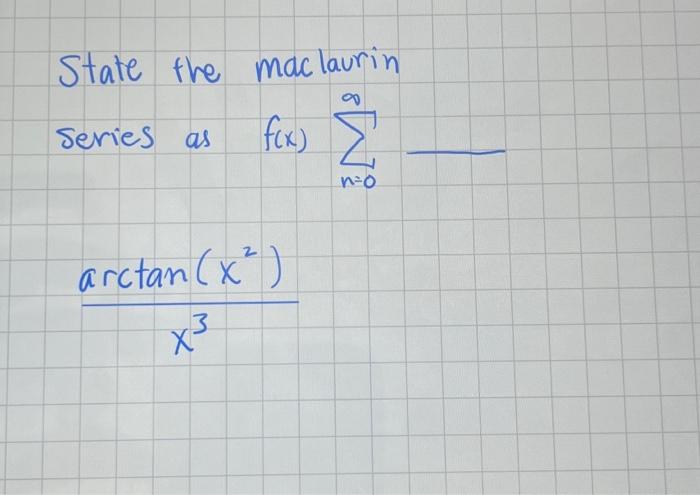 State the maclaurin
series as f(x) ∞∑n=0 ____
arctan(x²)
x³